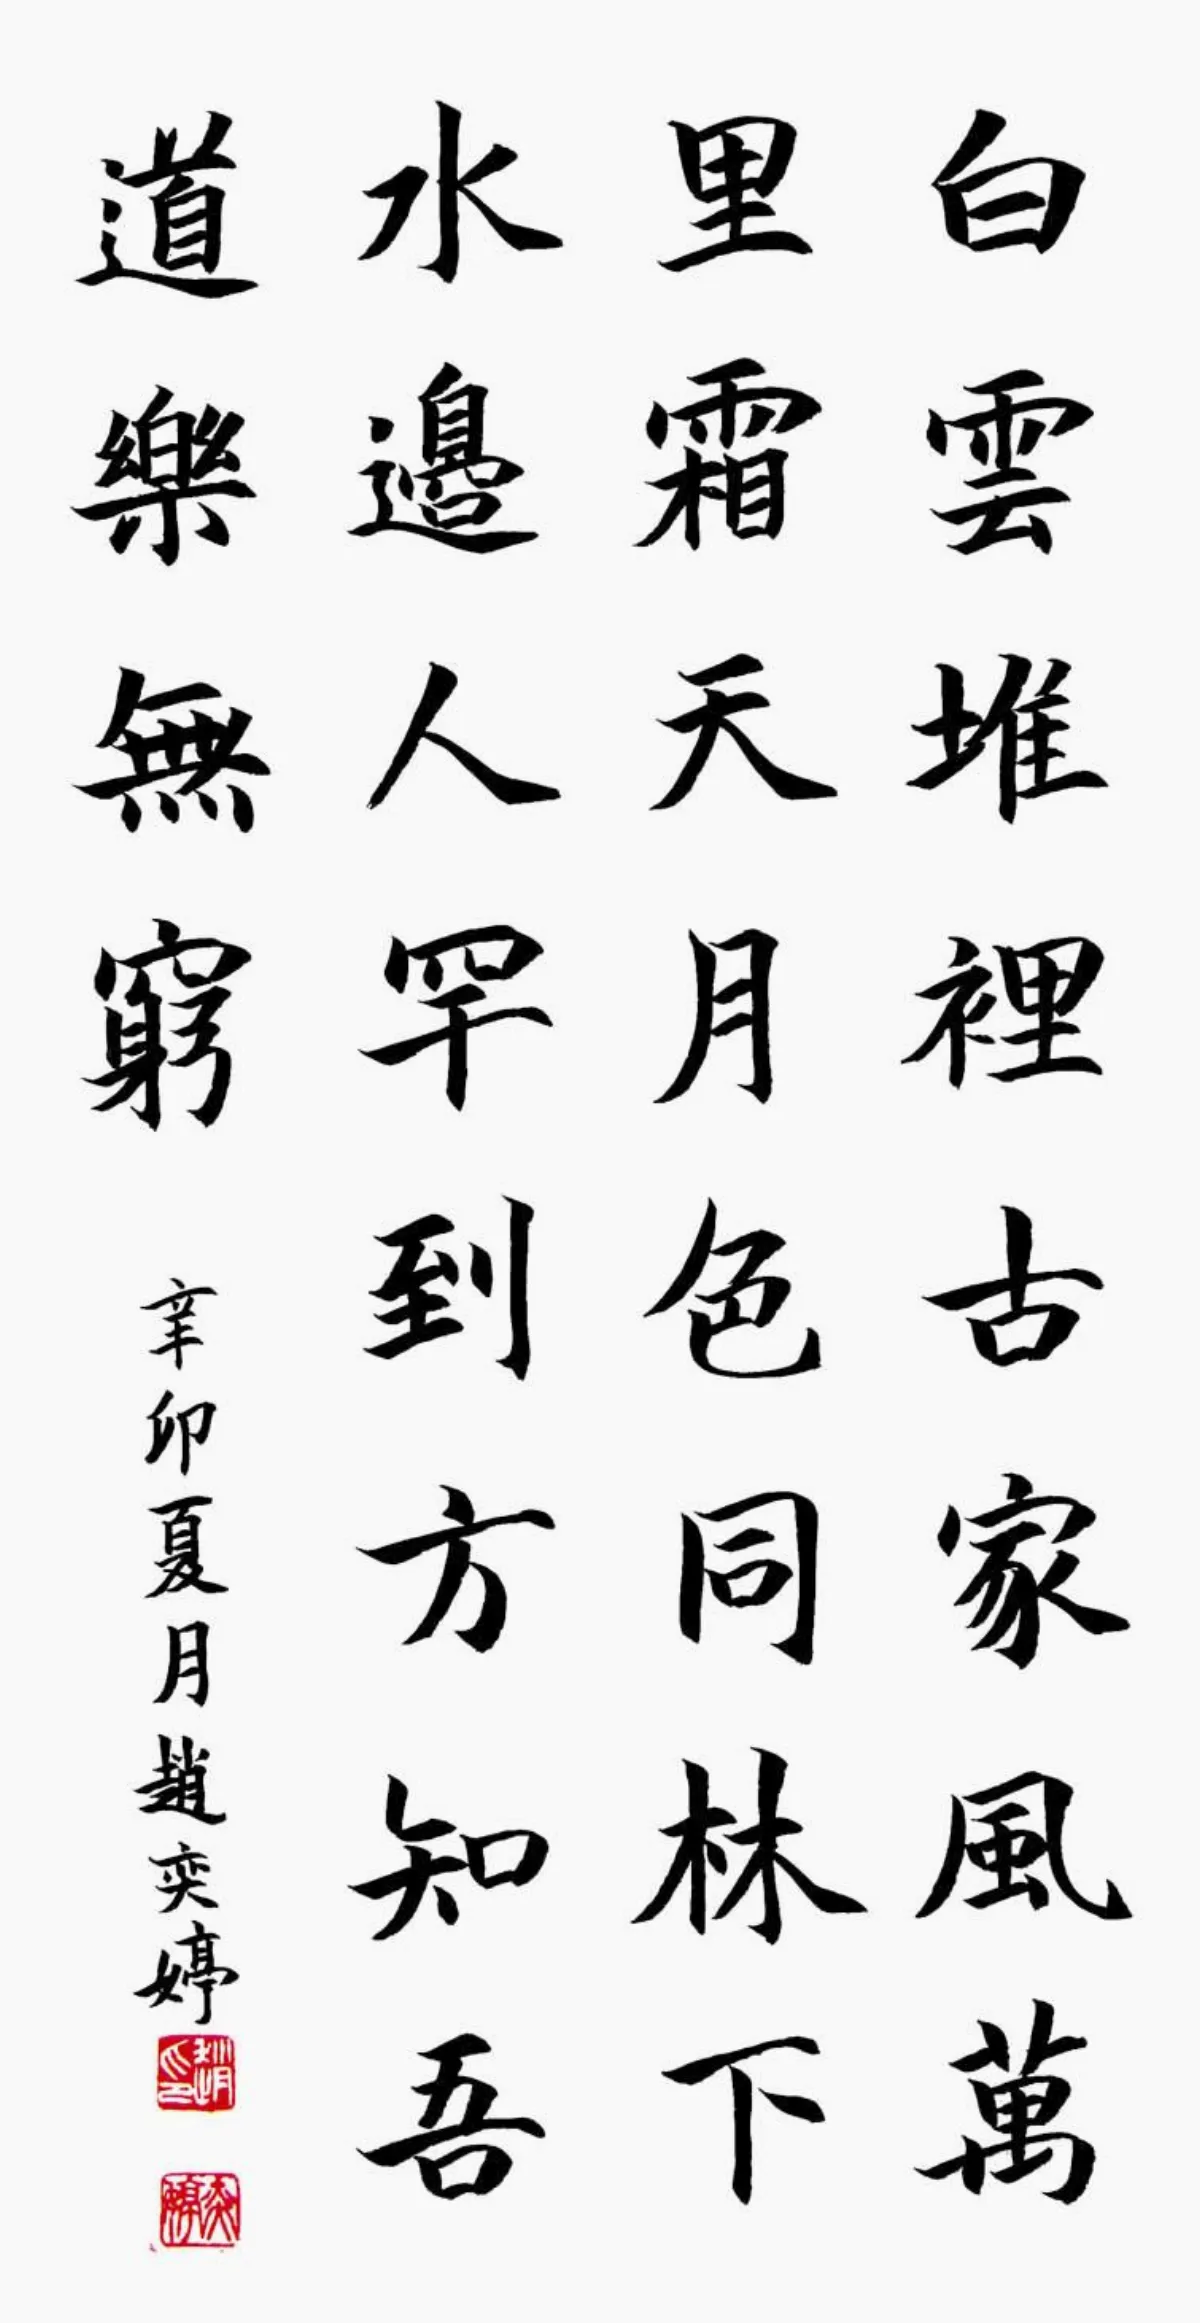 白雲堆裡古家風萬
里霜天月色同林下
水邊人罕到方知吾
道樂無窮
辛卯夏月趙奕婷